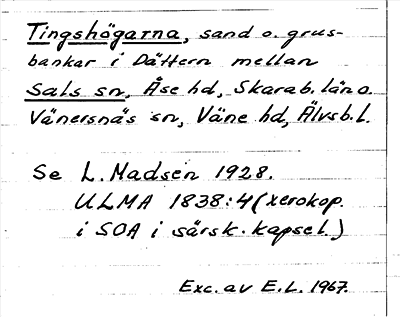 Tingshögarna, sand o. grus-
bankar i Dättern mellan
Sals sn, Åse hd, Skarab. län o.
Vänersnäs sn, Väne hd, Älvsb. l.
Se L. Madsen 1928.
ULMA 1838:4 (xerokop.
i SOA i särsk. kapsel.)
Exc. av E.L. 1967.